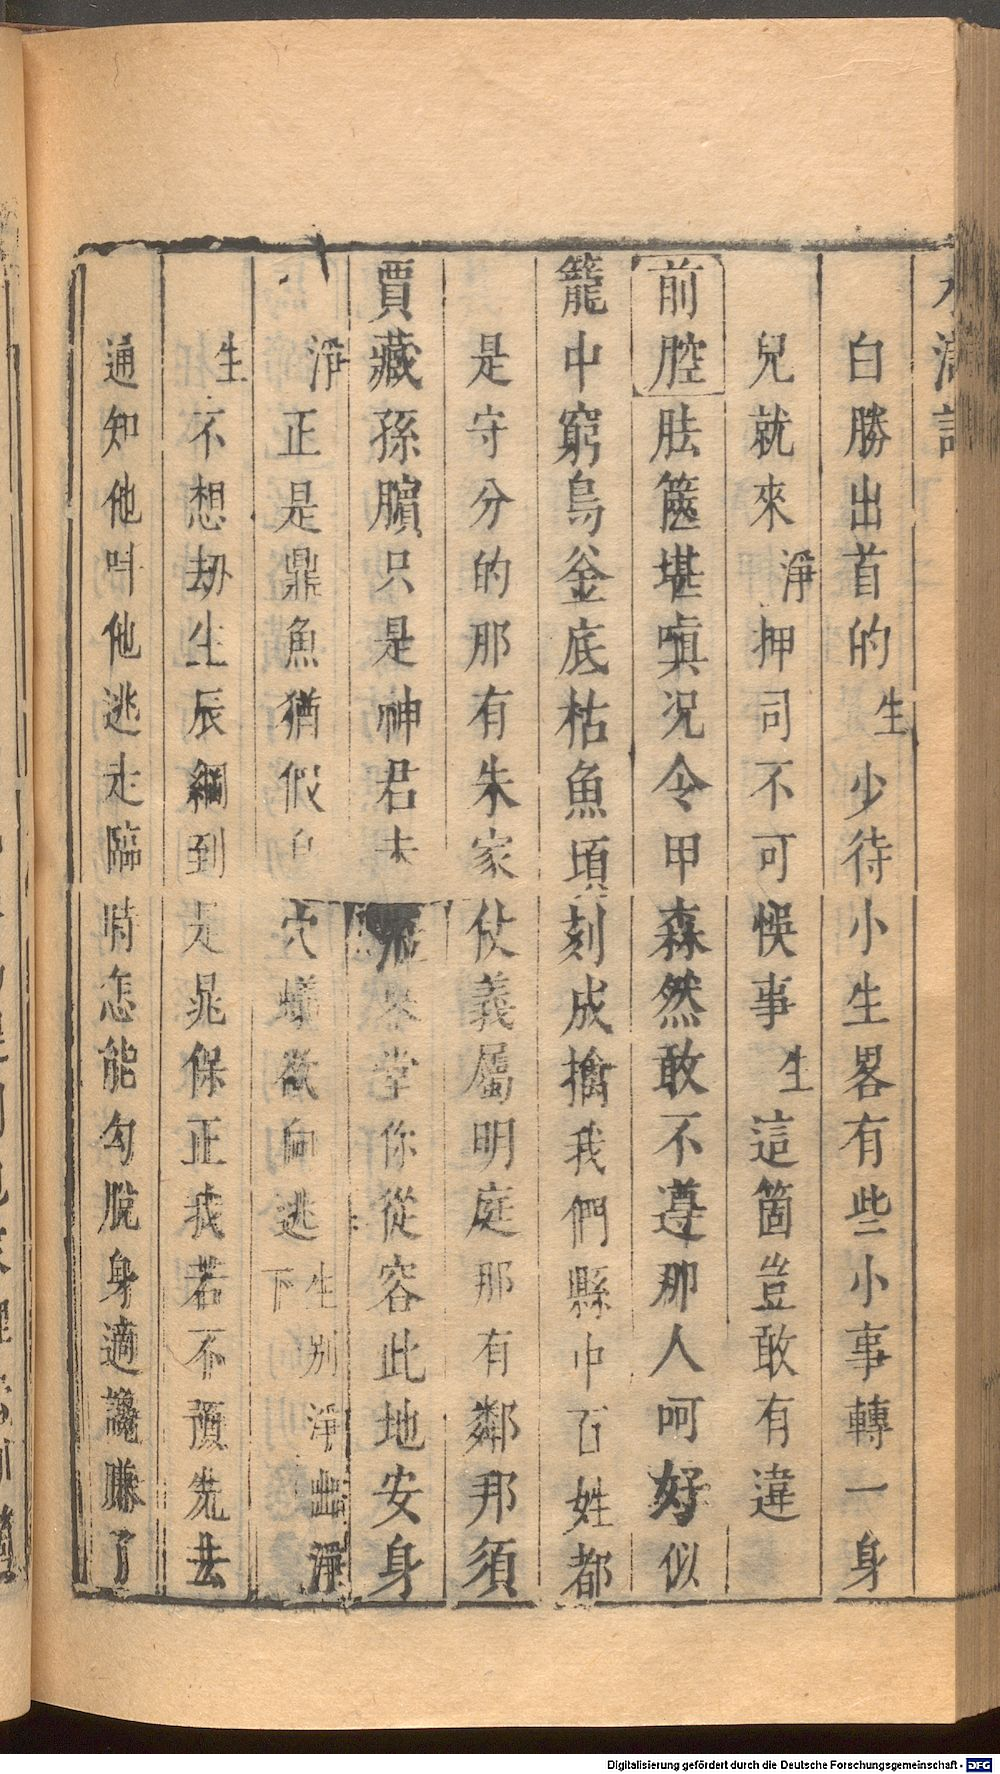 水滸記
白勝出首的生少待小生畧有些小事轉一身
兒就來淨押司不可悞事生這箇豈敢有違
前腔胠篋堪嗔况令甲森然敢不遵那人呵好似
籠中窮鳥釜底枯魚頃刻成擒我們縣中百姓都
是守分的那有朱家仗義屬明庭那有鄰邦須
賈藏孫臏只是神君未琴堂你從容此地安身
淨正是鼎魚猶假穴蟻欲向逃生下別淨出淨
生不想劫生辰綱到是晁保正我若不預先去
通知他呌他逃走臨時怎能勾脫身適讒賺了
Digitalisierung gefördert durch die Deutsche Forschungsgemeinschaft - DFG